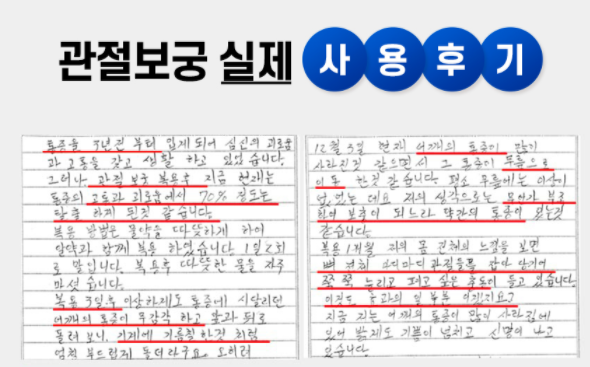 관절보궁 실제 사용후기
통증을 3년전 부터 입게 되어 심신의 괴로움
과 고통을 갖고 생활 하고 있었 습니다.
그러나, 관절 보궁 복용후 지금 현재는
통증의 고통과 괴로움에서 70% 정도는
탈출 하게 된것 같습니다.
복용 방법은 물약을 따뜻하게 하여
알약과 함께 복용 하였습니다. 1일 2회
로 말입니다. 복용후 따뜻한 물을 자주
마셨 습니다.
복용 3일후 이상하게도 통증에 시달리던
어깨의 통증이 하고 팔과 뒤로
돌려 보니, 기계에 기름칠 한것 처럼
엄청 부드럽게 돌더라구요. 도히려
12월 3일 현재 어깨의 통증이 많이
사라진것 같으면서 그 통증이 무릎으로
이동 한것 같습니다. 평소 무릎에는 이상이
없었는 데요 저의 생각으로는 무언가 부족
한것 보충이 되느라 약간의 통증이 있는것
같습니다.
복용 1개월 저의 몸 느낌을 보면
뼈 마디마다 관절들을
쭉쭉 늘리고 펴고 싶은 충동이 들고 있습니다.
이것도 효과의 일 부분 이겠지요?
지금 저는 어깨의 통증이 많이 사라짐에
있어 밝게도 기쁨이 넘치고 신명이 나고
있습니다.